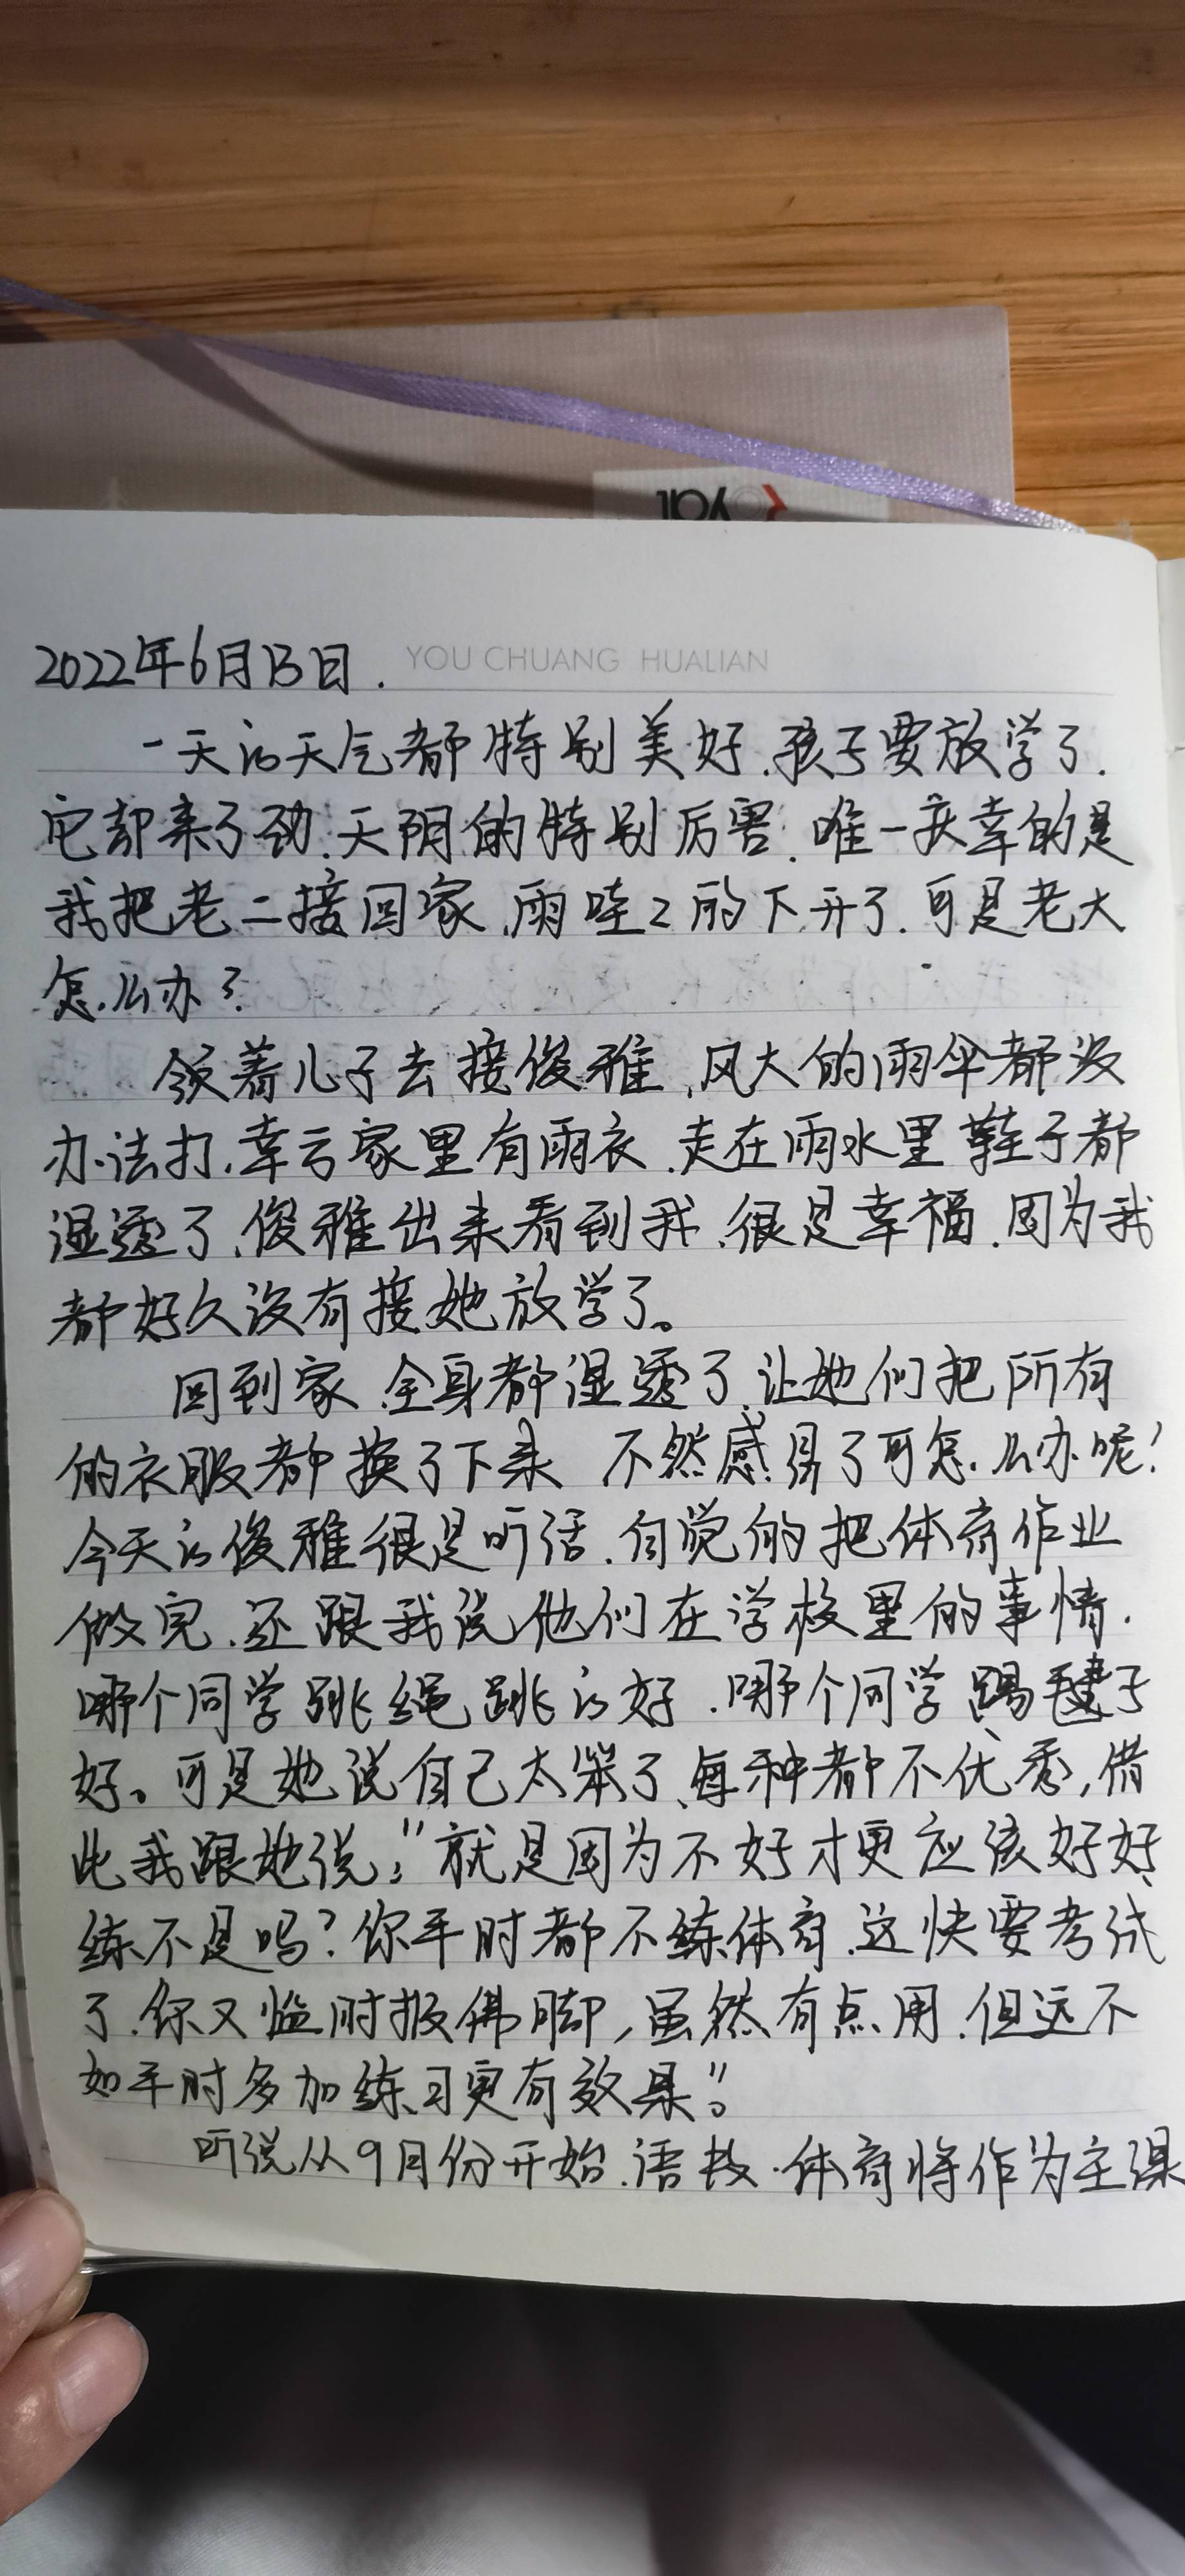 Royal
2022年6月13日.
YOU CHUANG HUALIAN
一天的天气都特别美好.孩子要放学了.
它却来了劲.天阴的特别厉害.唯一庆幸的是
我把老二接回家.雨哇々的下开了.可是老大
怎么办?
领着儿子去接俊雅.风大的雨伞都没
办法打.幸亏家里有雨衣.走在雨水里鞋子都
湿透了.俊雅出来看到我.很是幸福.因为我
都好久没有接她放学了。
回到家.全身都湿透了.让她们把所有
的衣服都换了下来 不然感冒了可怎么办呢!
今天的俊雅很是听话.自觉的把体育作业
做完.还跟我说他们在学校里的事情.
哪个同学跳绳跳的好.哪个同学踢毽子
好。可是她说自己太笨了、每种都不优秀,借
此我跟她说:"就是因为不好才更应该好好
练不是吗?你平时都不练体育.这快要考试
了.你又临时报佛脚,虽然有点用.但远不
如平时多加练习更有效果"。
听说从9月份开始.语数.体育将作为主课